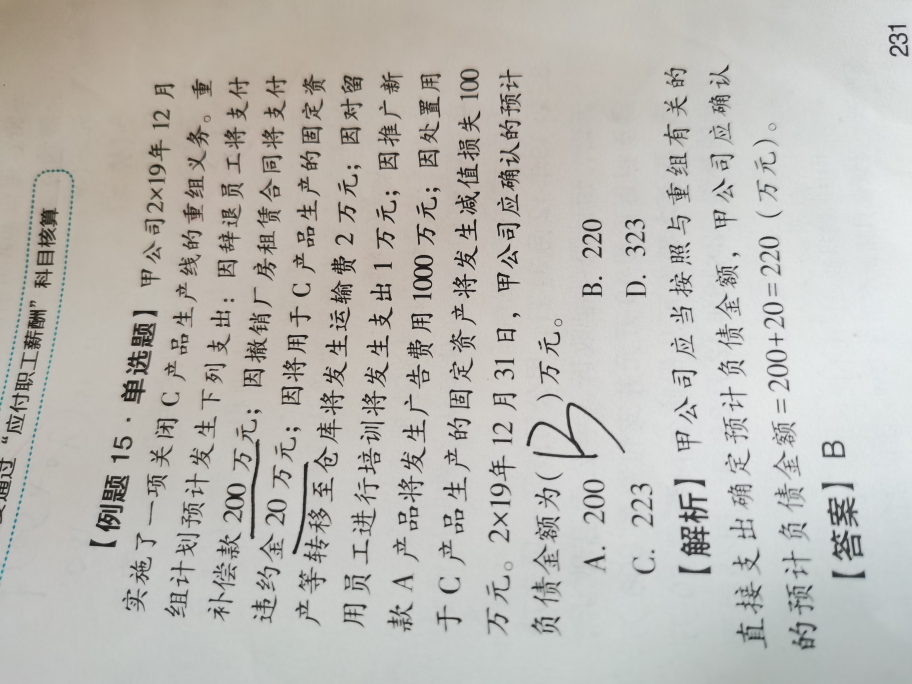 要通过“应付职工薪酬”科目核算
【例题 15·单选题】甲公司2×19年 12 月
实施了一项关闭 C 产品生产线的重组义务。重
组计划预计发生下列支出：因辞退员工将支付
补偿款 200 万元；因撤销厂房租赁合同将支付
违约金 20 万元；因将用于 C 产品生产的固定资
产等转移至仓库将发生运输费 2 万元；因对留
用员工进行培训将发生支出 1 万元；因推广新
款 A 产品将发生广告费用 1000 万元；因处置用
于 C 产品生产的固定资产将发生减值损失 100
万元。2×19年 12 月 31 日，甲公司应确认的预计
负债金额为( B )万元。
A. 200 B. 220
C. 223 D. 323
【解析】甲公司应当按照与重组有关的
直接支出确定预计负债金额，甲公司应确认
的预计负债金额=200+20=220（万元）。
【答案】B
231